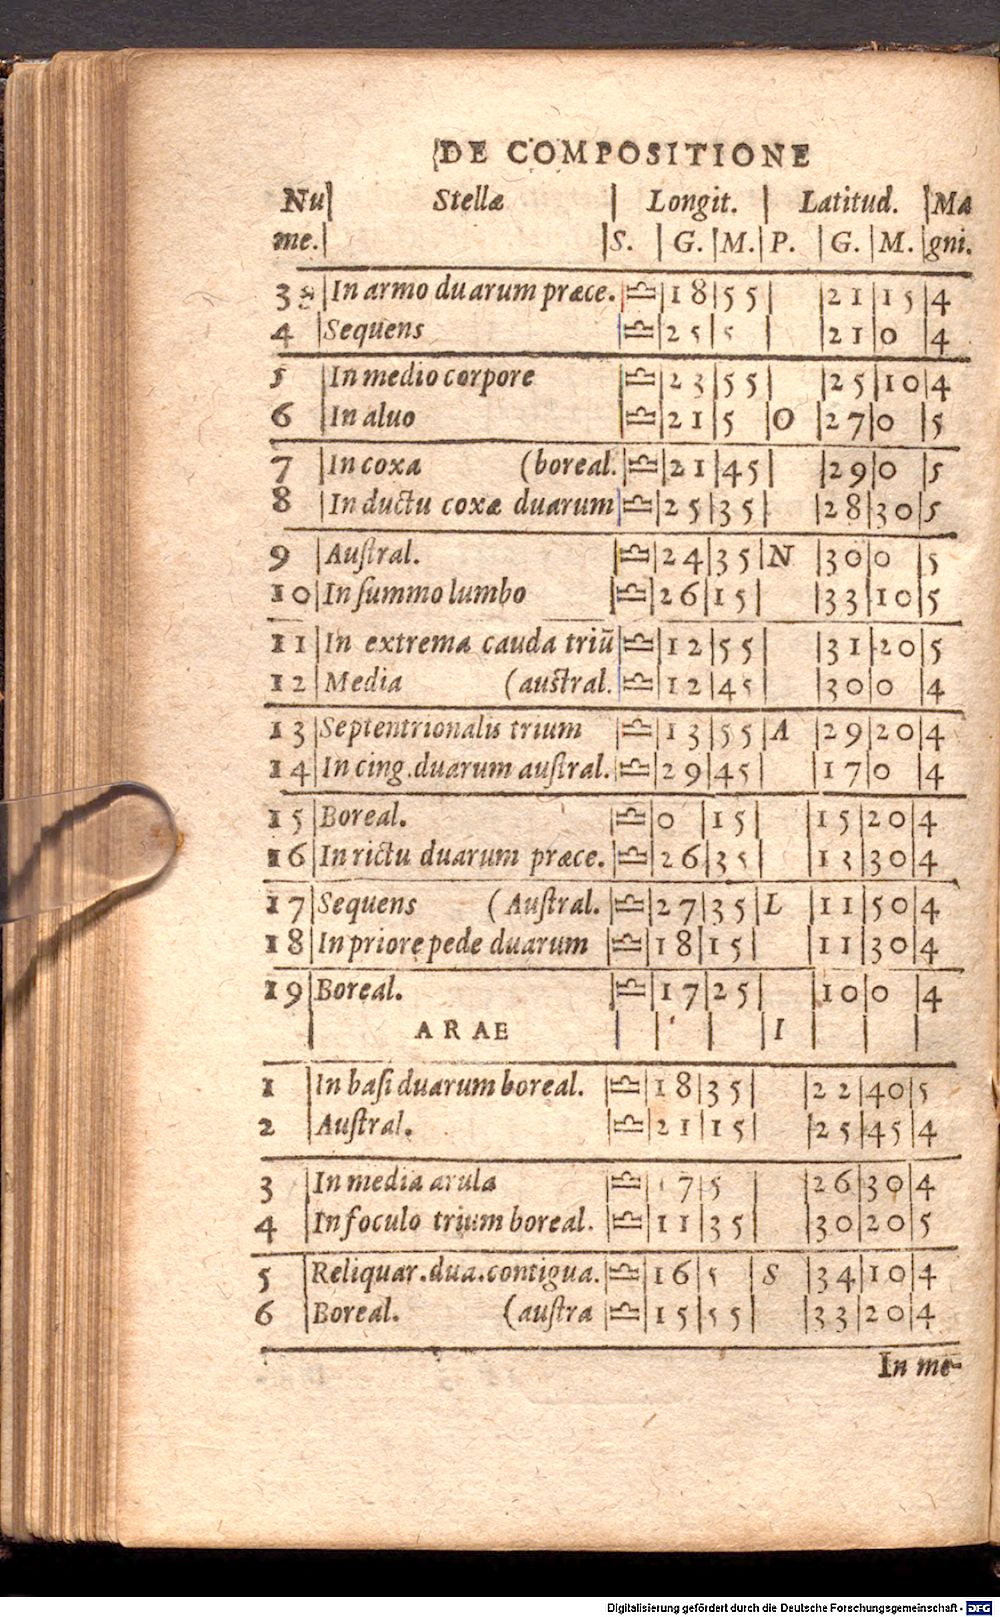 DE COMPOSITIONE
Nu| Stellæ | Longit. | Latitud. |Ma
me.| |S. | G. |M.|P. |G.|M.|gni.
3 |In armo duarum præce.|♎|18|55| |21|15|4
4 |Sequens |♎|25|5 | |21|0 |4
5 |In medio corpore |♎|23|55| |25|10|4
6 |In aluo |♎|21|5 |O |27|0 |5
7 |In coxa (boreal.|♎|21|45| |29|0 |5
8 |In ductu coxæ duarum|♎|25|35| |28|30|5
9 |Auſtral. |♎|24|35|N |30|0 |5
10|In ſummo lumbo |♎|26|15| |33|10|5
11|In extrema cauda triū|♎|12|55| |31|20|5
12|Media (auſtral.|♎|12|45| |30|0 |4
13|Septentrionalis trium |♎|13|55|A |29|20|4
14|In cing.duarum auſtral.|♎|29|45| |17|0 |4
15|Boreal. |♎|0 |15| |15|20|4
16|In rictu duarum præce.|♎|26|35| |13|30|4
17|Sequens (Auſtral.|♎|27|35|L |11|50|4
18|In priore pede duarum |♎|18|15| |11|30|4
19|Boreal. |♎|17|25| |10|0 |4
| ARAE | | | |I | | |
1 |In baſi duarum boreal. |♎|18|35| |22|40|5
2 |Auſtral. |♎|21|15| |25|45|4
3 |In media arula |♎| 7|5 | |26|30|4
4 |In foculo trium boreal.|♎|11|35| |30|20|5
5 |Reliquar.dua.contigua.|♎|16|5 |S |34|10|4
6 |Boreal. (auſtra |♎|15|55| |33|20|4
In me-
Digitalisierung gefördert durch die Deutsche Forschungsgemeinschaft - DFG